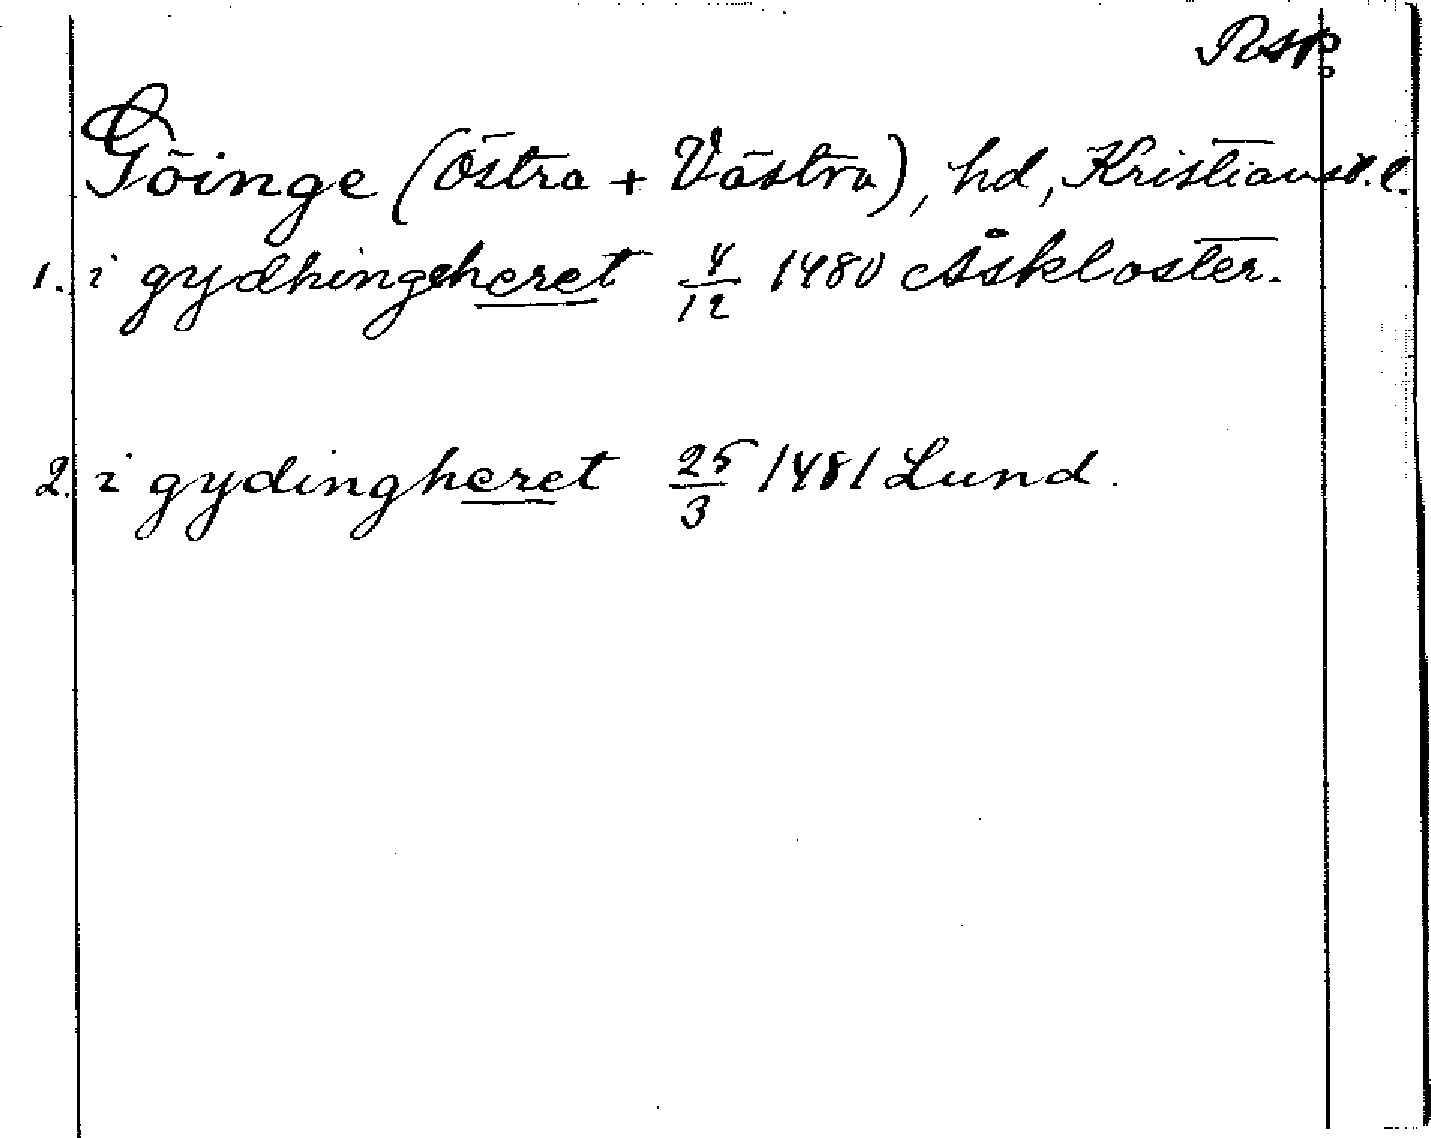 Rsp
Göinge (Östra + Västra), hd, Kristianst. l.
1. i gydhingeheret 4/12 1480 Åskloster.
2. i gydingheret 25/3 1481 Lund.